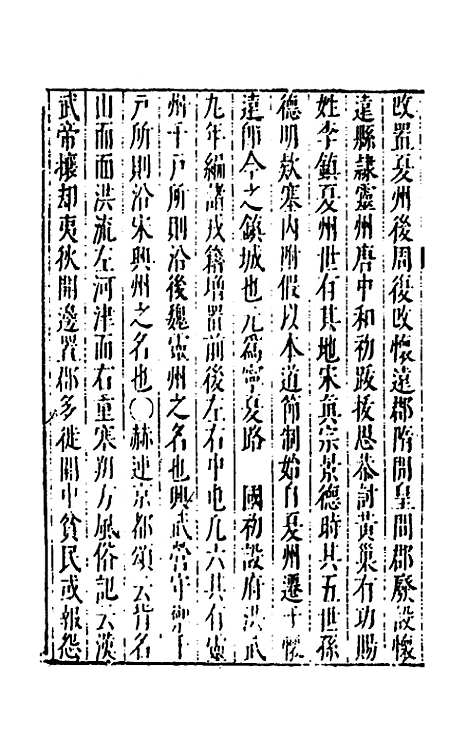 改置夏州後周復改懷遠郡隋開皇間郡廢設懷
遠縣隷靈州唐中和初跋拔思恭討黃巢有功賜
姓李鎮夏州世有其地宋眞宗景德時其五世孫
德明欵塞內附假以本道節制始自夏州遷于懷
遠卽今之鎮城也元爲寧夏路　國初設府洪武
九年編諸戎籍增置前後左右中屯凡六其有靈
州千戶所則沿後魏靈州之名也興武營守禦千
戶所則沿宋興州之名也〇赫連京都頌云背名
山而面洪流左河津而右重塞朔方風俗記云漢
武帝攘却夷狄開邊置郡多徙關中貧民或報怨